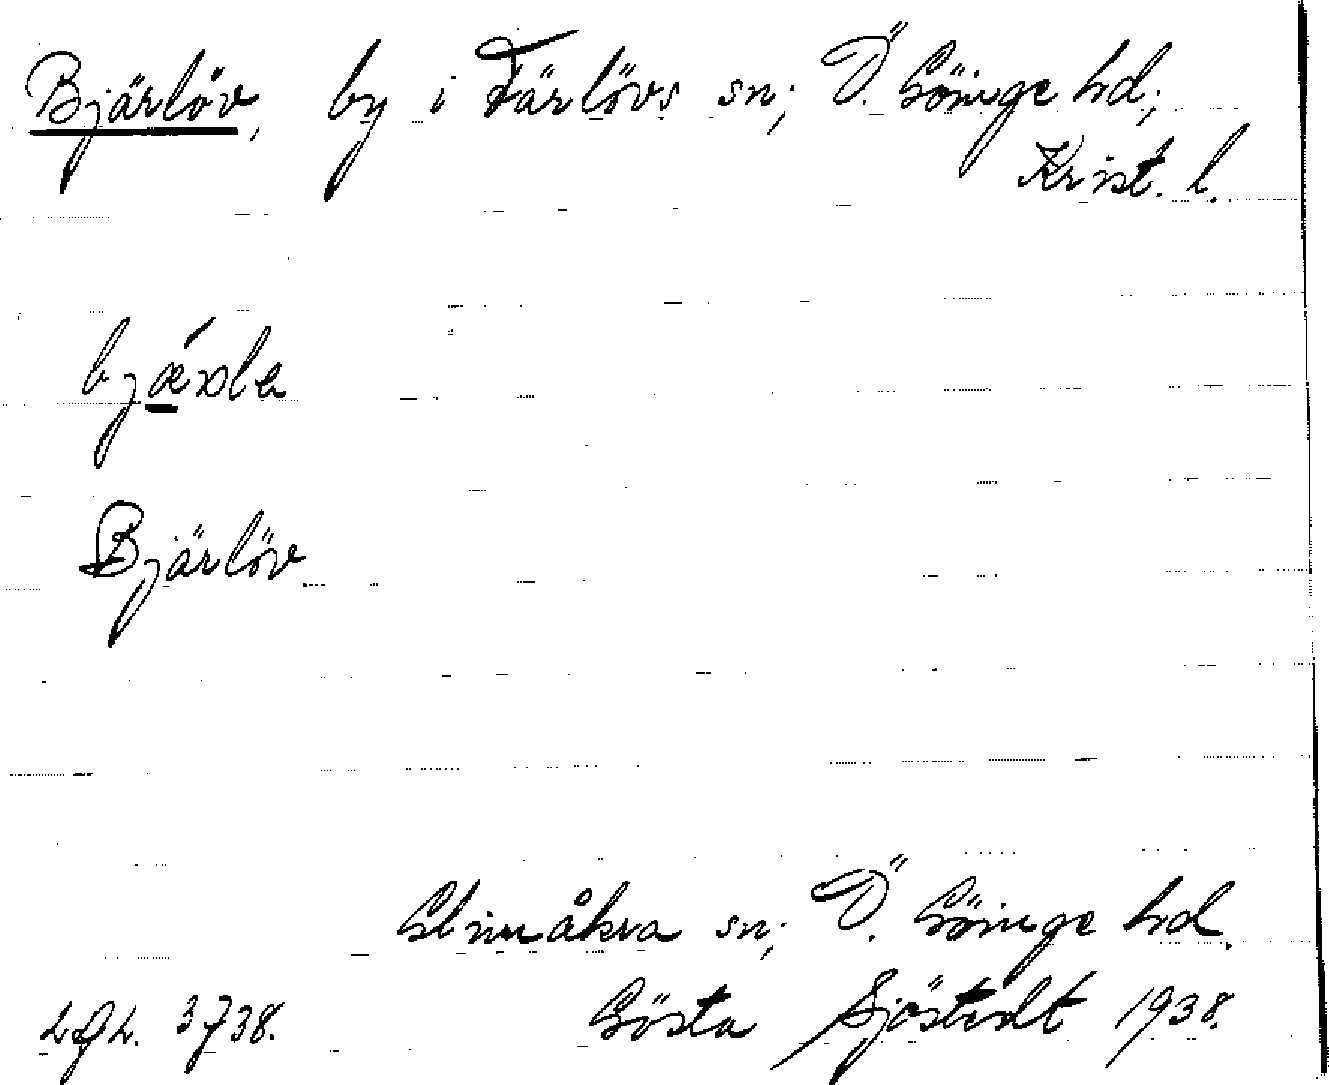 Bjärlöv, by i Färlövs sn; Ö. Göinge hd;
Krist. l.
Bjärlöv
Glimåkra sn; Ö. Göinge hd.
Gösta Sjöstedt 1938.
3738.